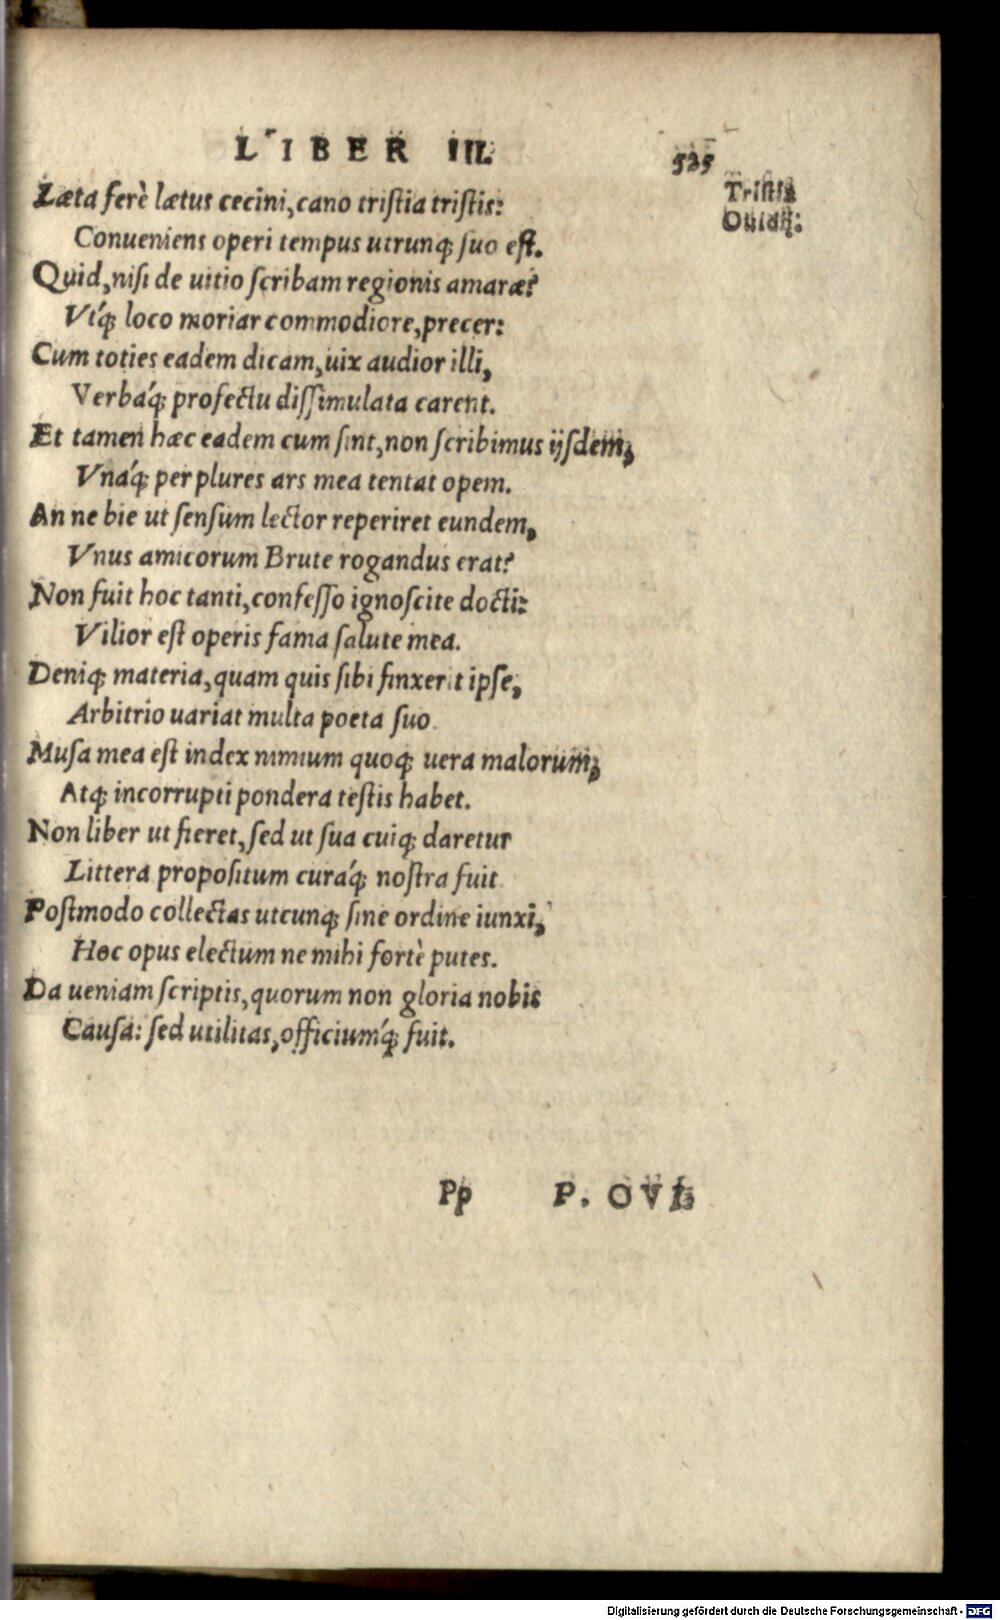 LIBER III. 525
Læta ferè lætus cecini, cano tristia tristis:
Tristia
Ouidij:
Conueniens operi tempus utrunq; suo est.
Quid, nisi de uitio scribam regionis amaræ?
Vtq́; loco moriar commodiore, precer:
Cum toties eadem dicam, uix audior illi,
Verbaq́; profectu dissimulata carent.
Et tamen hæc eadem cum sint, non scribimus ijsdem,
Vnaq́; per plures ars mea tentat opem.
An ne bie ut sensum lector reperiret eundem,
Vnus amicorum Brute rogandus erat?
Non fuit hoc tanti, confesso ignoscite docti:
Vilior est operis fama salute mea.
Deniq; materia, quam quis sibi finxerit ipse,
Arbitrio uariat multa poeta suo.
Musa mea est index nimium quoq; uera malorum,
Atq; incorrupti pondera testis habet.
Non liber ut fieret, sed ut sua cuiq; daretur
Littera propositum curaq́; nostra fuit.
Postmodo collectas utcunq; sine ordine iunxi,
Hoc opus electum ne mihi fortè putes.
Da ueniam scriptis, quorum non gloria nobis
Causa: sed utilitas, officiumq́; fuit.
Pp P. OVI
Digitalisierung gefördert durch die Deutsche Forschungsgemeinschaft - DFG